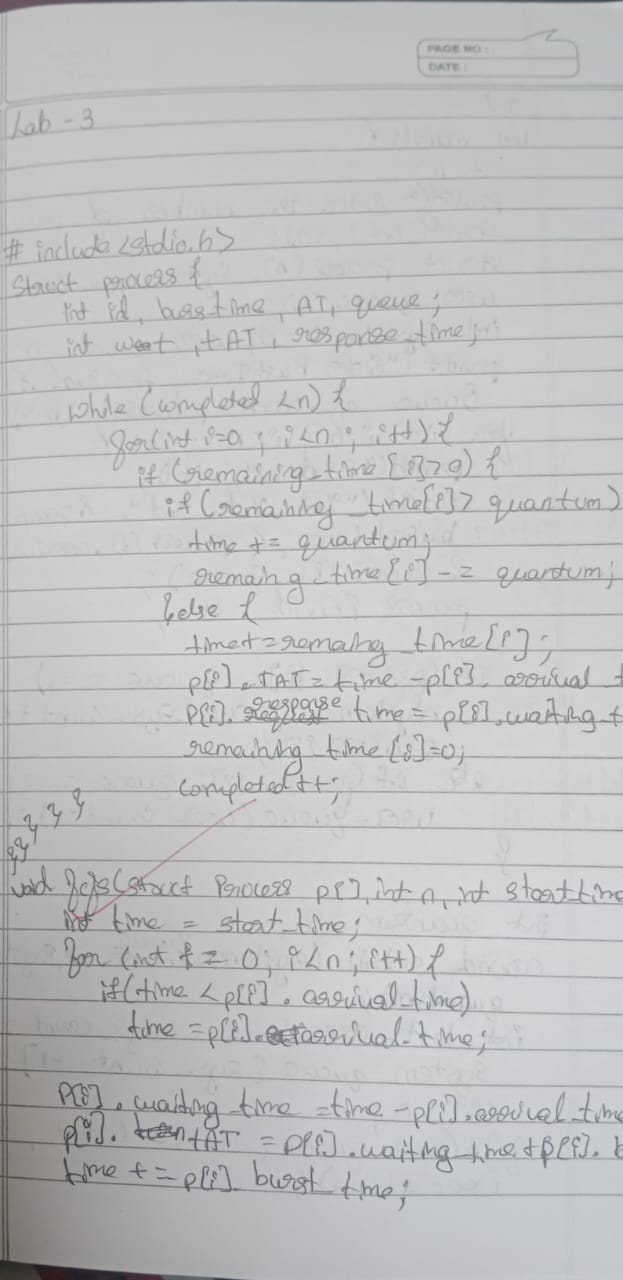 PAGE NO :
DATE :
Lab - 3
# include <stdio.h>
Struct process {
int id, buss time, AT, queue;
int wait, tAT, response_time;
while (completed <n) {
for(int i=0 ; i<n ; i++) {
if (remaining_time [i]>0) {
if (remaining_time[i]> quantum)
time += quantum;
remaing_time[i] -= quantum;
}else {
time+=remaing time[i];
p[i].TAT= time -p[i]. arrival t
P[i]. response time= p[i].waiting_t
remaining time [i]=0;
completed++;
} } } } }
void fcfs(struct Process p[], int n, int start time
int time = start_time;
for (int i = 0; i<n; i++) {
if(time <p[i]. arrival_time)
time =p[i].arrival_time;
P[i]. waiting time =time -p[i].arrival_time
p[i]. tAT = P[i].waiting_time + p[i]. b
time += p[i] burst time;